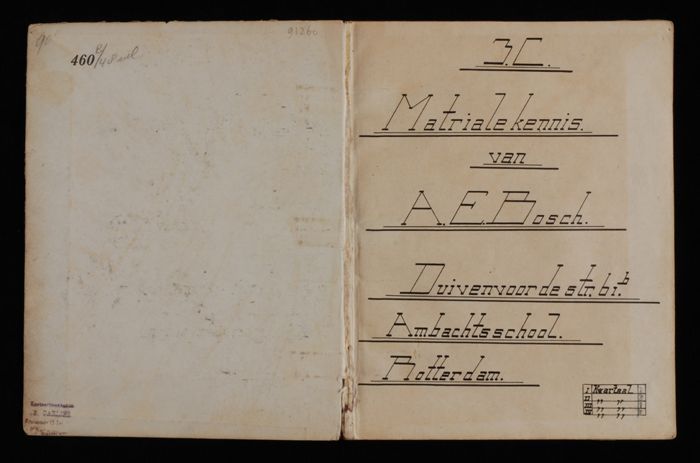 91260
460
3.C.
Matrialekennis.
van
A.E.Bosch.
Duivenvoordestr. 61.b
Ambachtsschool.
Rotterdam.
I Kwartaal
II ,, ,,
III ,, ,,
IV ,, ,,